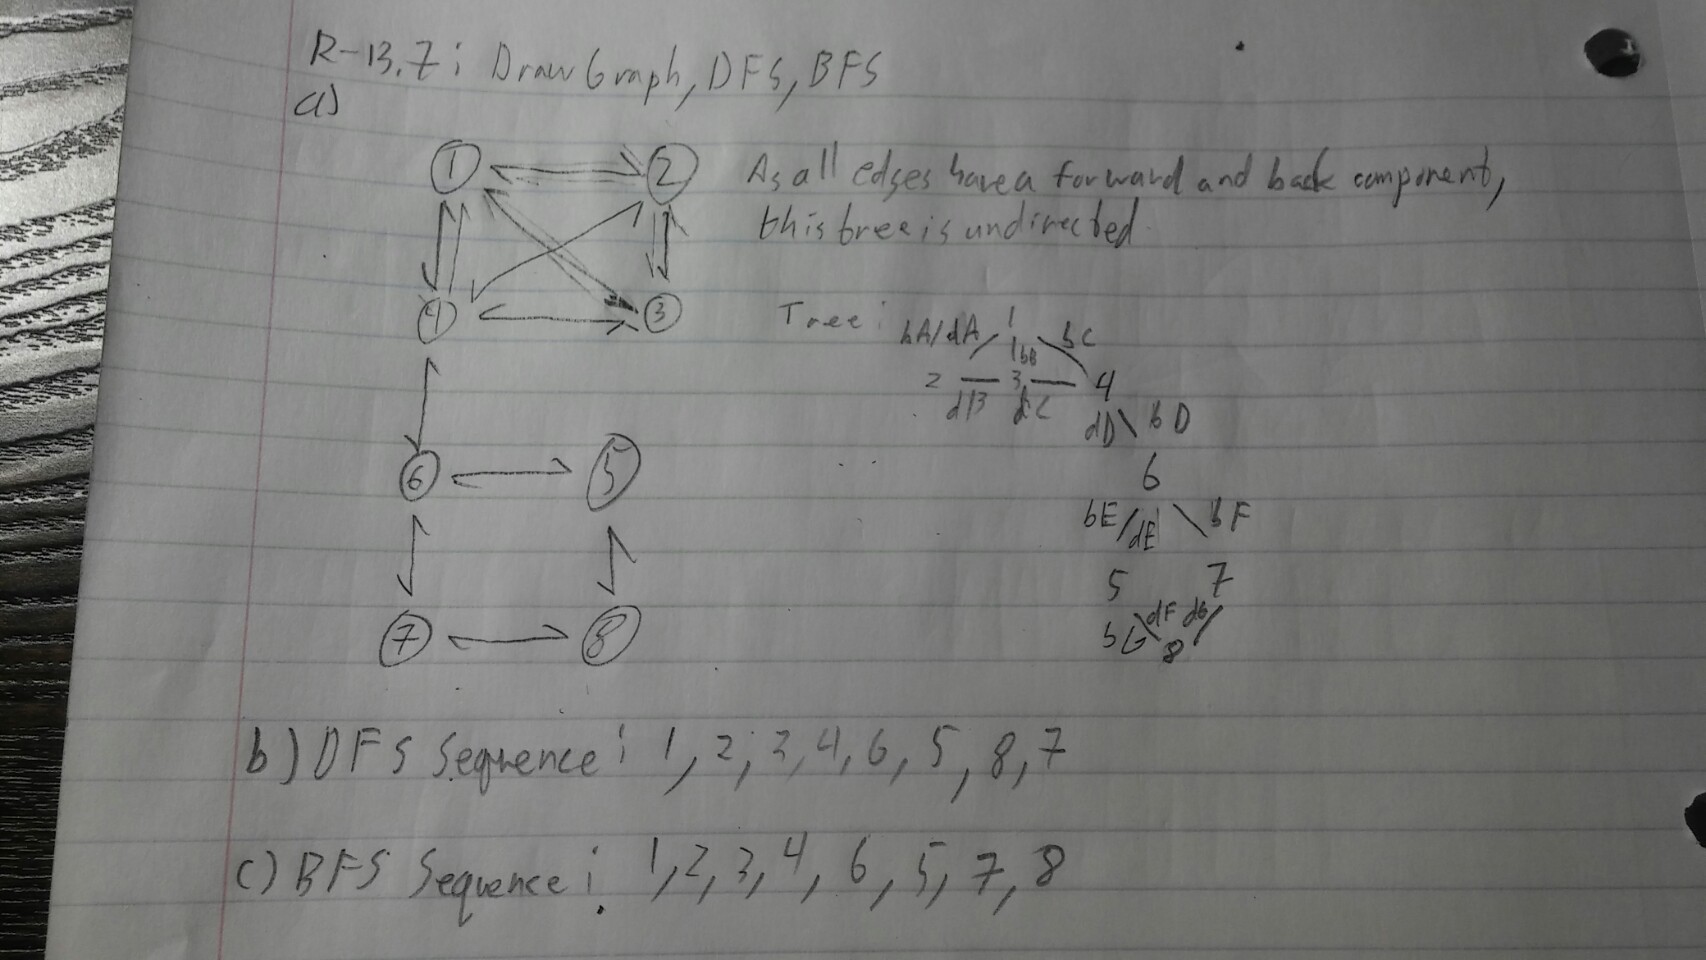 R-13.7: Draw Graph, DFS, BFS
a)
1 2
As all edges have a forward and back component,
this tree is undirected
4 3
Tree: 1
bA/dA bB bC
2 3 4
dB dC
dD bD
6 5
6
bE/dE bF
5 7
dF dG
bG 8
7 8
b) DFS Sequence: 1, 2, 3, 4, 6, 5, 8, 7
c) BFS Sequence: 1, 2, 3, 4, 6, 5, 7, 8